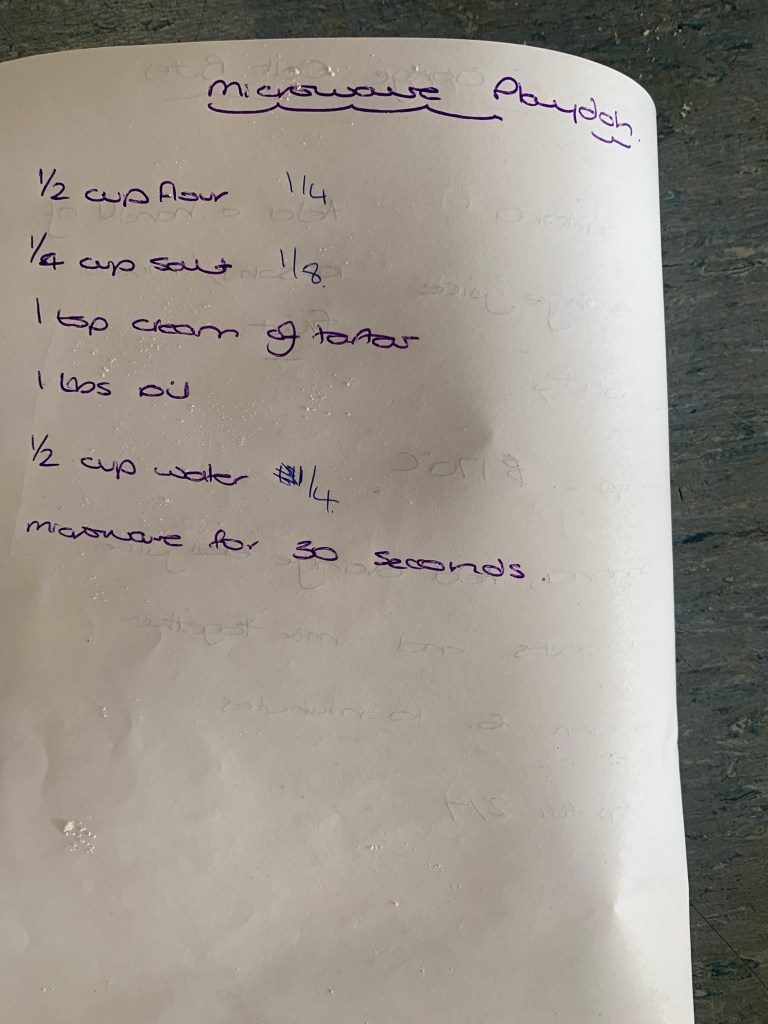 microwave Playdoh.
1/2 cup flour 1/4
1/4 cup salt 1/8
1 tsp cream of tartar
1 tbs oil
1/2 cup water 1/4
microwave for 30 seconds.